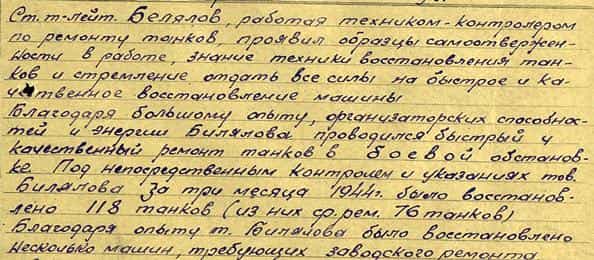 Ст. т-лейт. Белялов, работая техником-контролером
по ремонту танков, проявил образцы самоотвержен-
ности в работе, знание техники восстановления тан-
ков и стремление отдать все силы на быстрое и ка-
чественное восстановление машины
Благодаря большому опыту, организаторских способнос-
тей и энергии Билялова проводился быстрый и
качественный ремонт танков в боевой обстанов-
ке Под непосредственным контролем и указаниях тов.
Билялова за три месяца 1944г. было восстанов-
лено 118 танков (из них ср. рем. 76 танков)
Благодаря опыту т. Билялова было восстановлено
несколько машин, требующих заводского ремонта